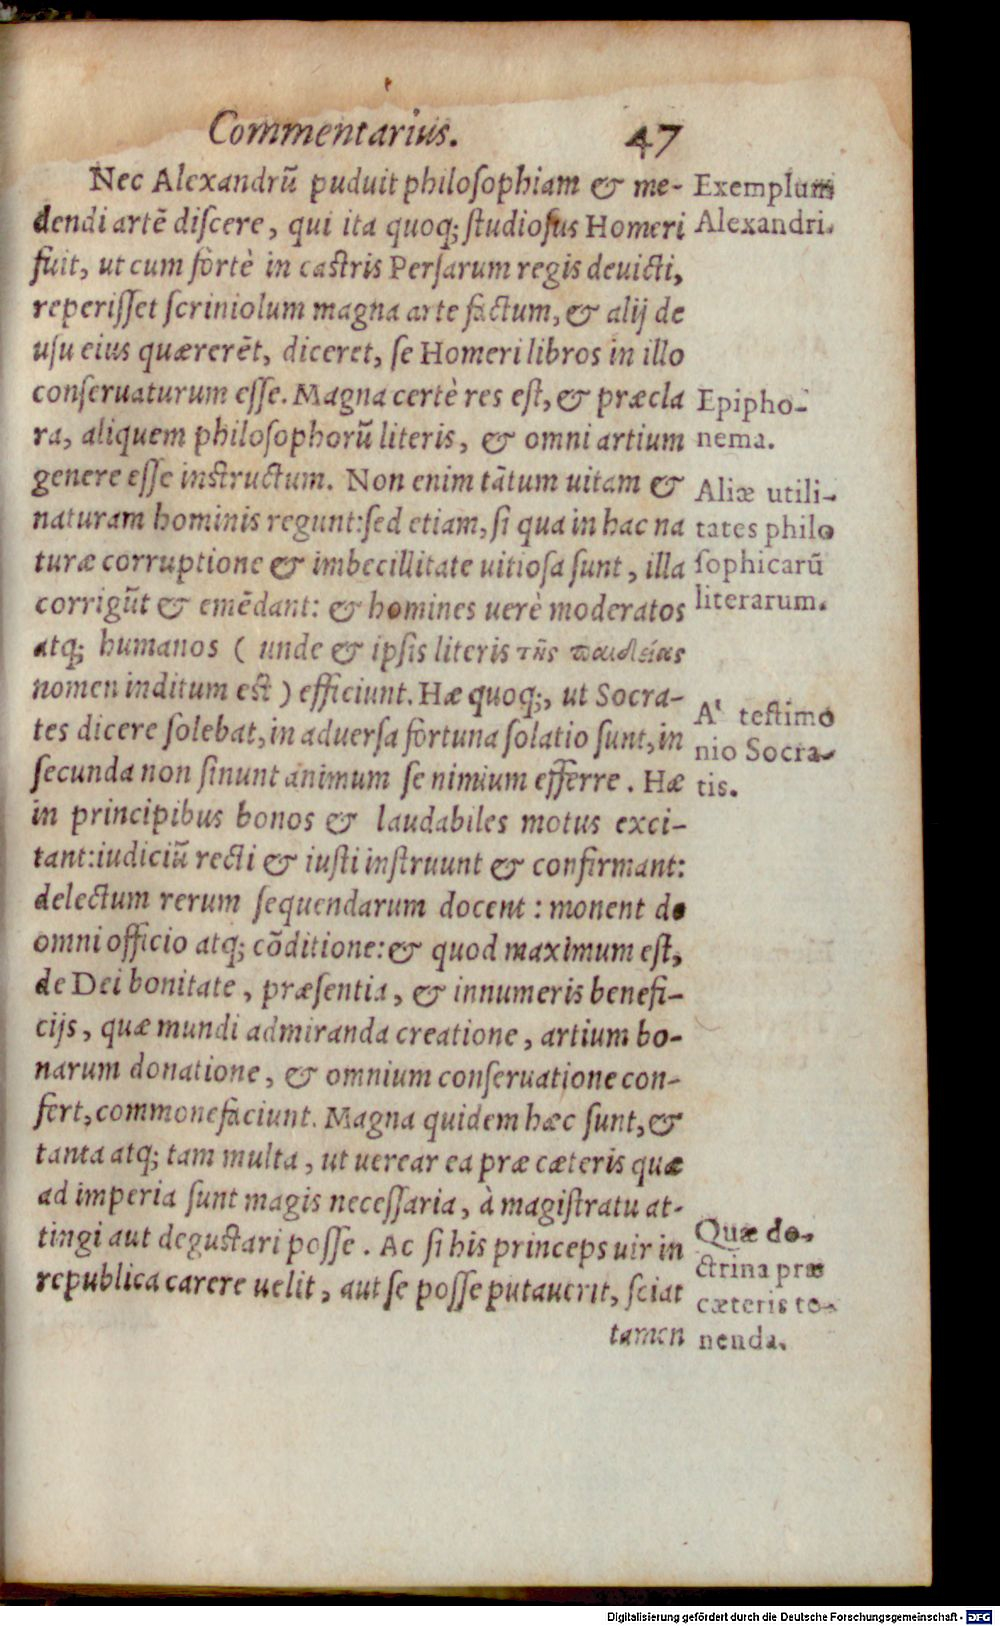 Commentarius. 47
Nec Alexandrū puduit philoſophiam & me-
dendi artē diſcere, qui ita quoq; ſtudioſus Homeri
fuit, ut cum fortè in caſtris Perſarum regis deuicti,
reperiſſet ſcriniolum magna arte factum, & alij de
uſu eius quærerēt, diceret, ſe Homeri libros in illo
conſeruaturum eſſe. Magna certè res eſt, & præcla
ra, aliquem philoſophorū literis, & omni artium
genere eſſe inſtructum. Non enim tātum uitam &
naturam hominis regunt: ſed etiam, ſi qua in hac na
turæ corruptione & imbecillitate uitioſa ſunt, illa
corrigūt & emēdant: & homines uerè moderatos
atq; humanos ( unde & ipſis literis τῆς παιδείας
nomen inditum eſt ) efficiunt. Hæ quoq;, ut Socra-
tes dicere ſolebat, in aduerſa fortuna ſolatio ſunt, in
ſecunda non ſinunt animum ſe nimium efferre. Hæ
in principibus bonos & laudabiles motus exci-
tant: iudiciū recti & iuſti inſtruunt & confirmant:
delectum rerum ſequendarum docent: monent de
omni officio atq; cōditione: & quod maximum eſt,
de Dei bonitate, præſentia, & innumeris benefi-
cijs, quæ mundi admiranda creatione, artium bo-
narum donatione, & omnium conſeruatione con-
fert, commonefaciunt. Magna quidem hæc ſunt, &
tanta atq; tam multa, ut uerear ea præ cæteris quæ
ad imperia ſunt magis neceſſaria, à magiſtratu at-
tingi aut deguſtari poſſe. Ac ſi his princeps uir in
republica carere uelit, aut ſe poſſe putauerit, ſciat
tamen
Exemplum
Alexandri.
Epipho-
nema.
Aliæ utili-
tates philo
ſophicarū
literarum.
A' teſtimo
nio Socra-
tis.
Quæ do-
ctrina præ
cæteris te-
nenda.
Digitalisierung gefördert durch die Deutsche Forschungsgemeinschaft - DFG